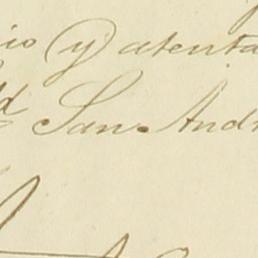 io (y) atenta
d San Andr